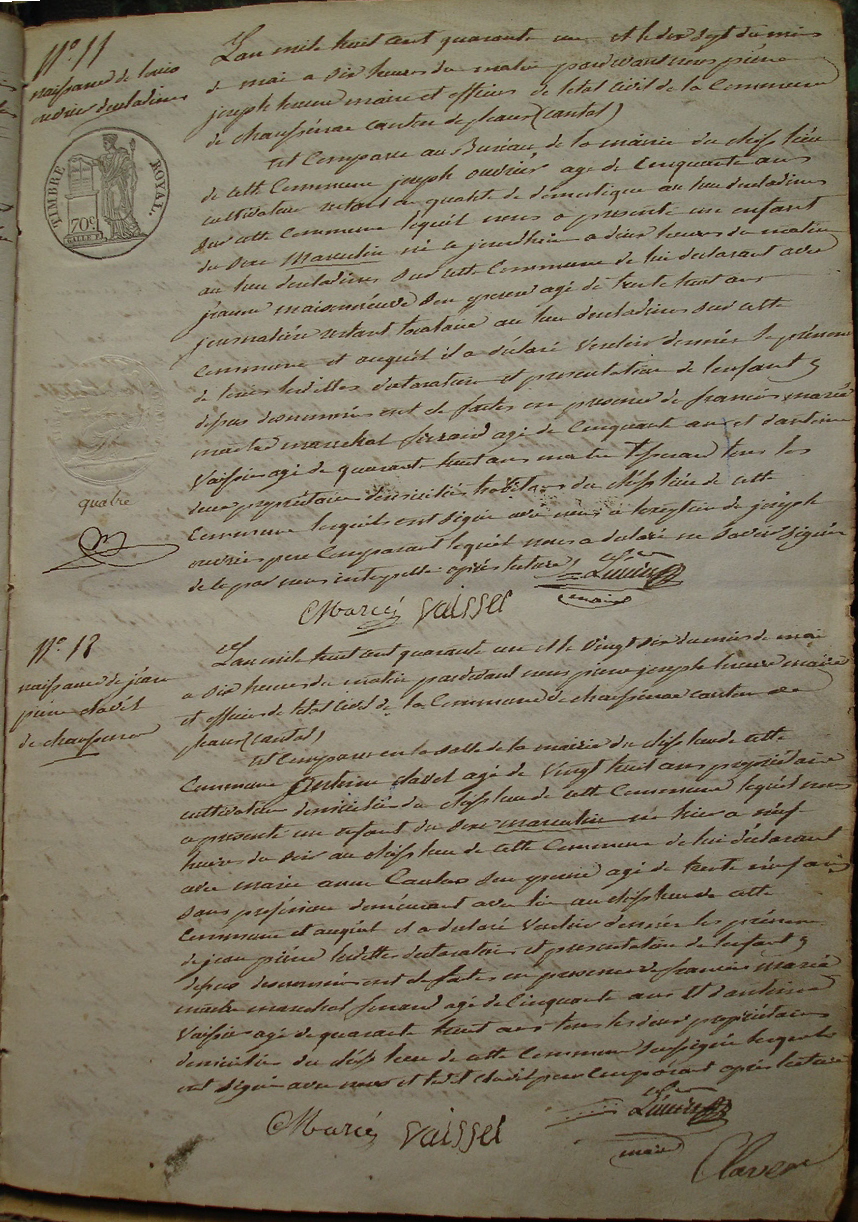 N.º 11
naissance de louis
ouvrier descladines
TIMBRE ROYAL.
70 C.
quatre
L'an mile huit cent quarante un et le dix sept du mois
de mai a dix heures du matin pardevant nous pierre
joseph maire et officier de letat Civil de la Commune
de chaussenac canton de pleaux (cantal)
est Comparu au Bureau de la mairie du chef lieu
de cette Commune joseph ouvrier agé de Cinquante ans
cultivateur restant en qualité de domestique au lieu descladines
sur cette Commune lequel nous a presenté un enfant
du sexe Masculin né a jourdhui a deux heures du matin
au lieu descladines sur cette Commune de lui declarant avec
jeanne maisonneuve son epouse agé de trente huit ans
journaliere restant locataire au lieu descladines sur cette
Commune et auquel il a déclaré Vouloir donner le prénom
de louis lesdittes declaration et presentation de lenfant
depus denommés ont été faites en presence de francois marcé
marechal ferrand agé de Cinquante ans et d'antoine
Vaissier agé de quarante huit ans tous les
deux propriétaires domiciliés du chef lieu de cette
Commune lesquels ont Signé avec nous a lexeption de joseph
ouvrier pere Comparant lequel nous a declaré ne Savoir Signer
de le par nous interpellé après lecture
Marcé Vaisset
maire
N.º 12
naissance de jean
pierre clavet
de chaussenac
L'an mile huit cent quarante un et le Vingt Six du mois de mai
a dix heures du matin pardevant nous pierre joseph maire
et officier de letat Civil de la Commune de chaussenac canton de
pleaux (cantal)
est Comparu en la salle de la mairie du chef lieu de cette
Commune Antoine clavet agé de Vingt huit ans propriétaire
cultivateur domicilié du chef lieu de cette Commune lequel nous
a presenté un enfant du sexe masculin né hier a neuf
heures du soir au chef lieu de cette Commune de lui déclarant
avec marie anne son epouse agé de trente neuf ans
sans profession demeurant avec lui au chef lieu de cette
Commune et auquel il a declaré Vouloir donner les prénoms
de jean pierre lesdittes declaration et presentation de lenfant
depus denommés ont été faites en presence de francois marcé
marechal ferrand agé de Cinquante ans et d'antoine
Vaissier agé de quarante huit ans tous les deux propriétaires
domiciliés du chef lieu de cette Commune lesquels
ont Signé avec nous et ledit clavet pere Comparant après lecture
Marcé Vaisset
maire
Clavet